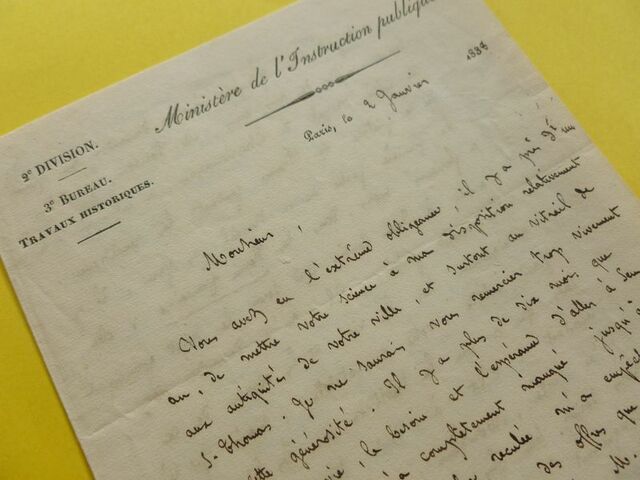 Ministère de l'Instruction publique
2e DIVISION.
3e BUREAU.
TRAVAUX HISTORIQUES.
Paris, le 2 Janvier 1838
Monsieur,
Vous avez eu l'extrême obligeance, il y a près d'un
an, de mettre votre science à ma disposition relativement
aux antiquités de votre ville, et surtout au vitrail de
S. Thomas. Je ne saurais vous remercier trop vivement
cette générosité. Il y a plus de dix mois que
le besoin et l'espérance d'aller à Sens
complètement manqué jusqu'à
reculée m'a empêché
des offres que
M.